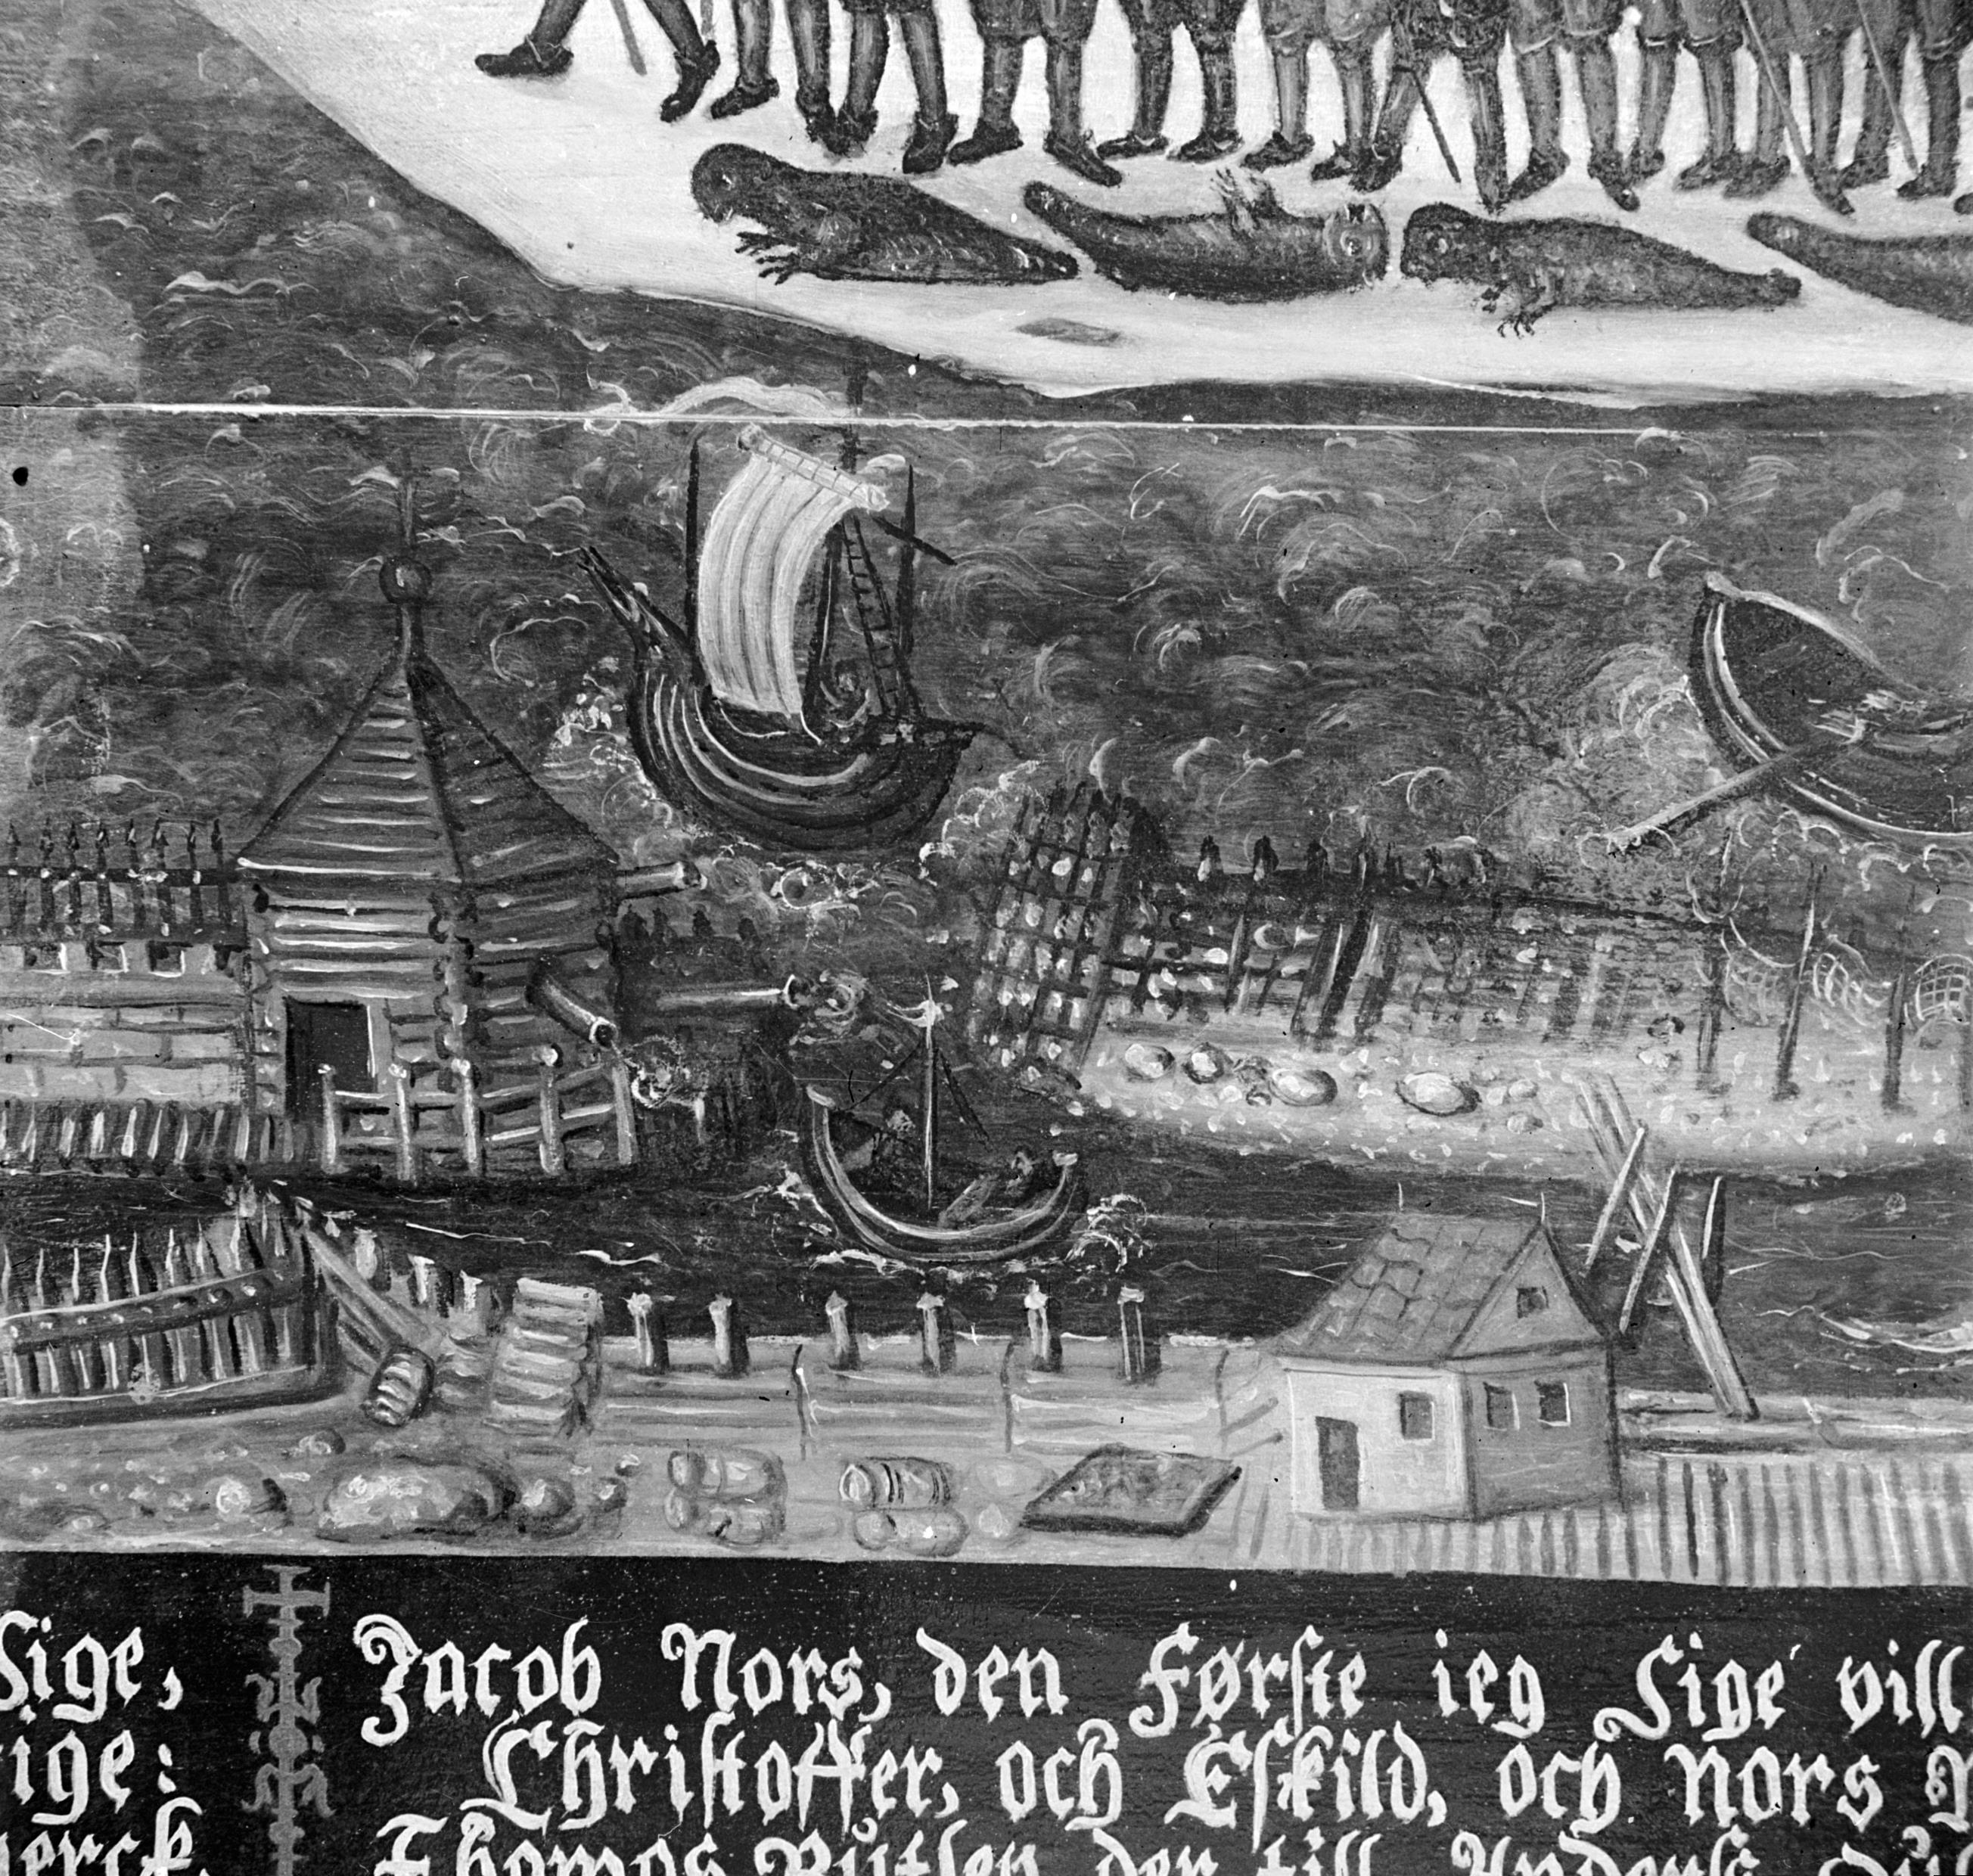 Sige,
ige:
erck.
Jacob Nors, den Første ieg Sige vill
Christoffer, och Eskild, och Nors
Thomas den till